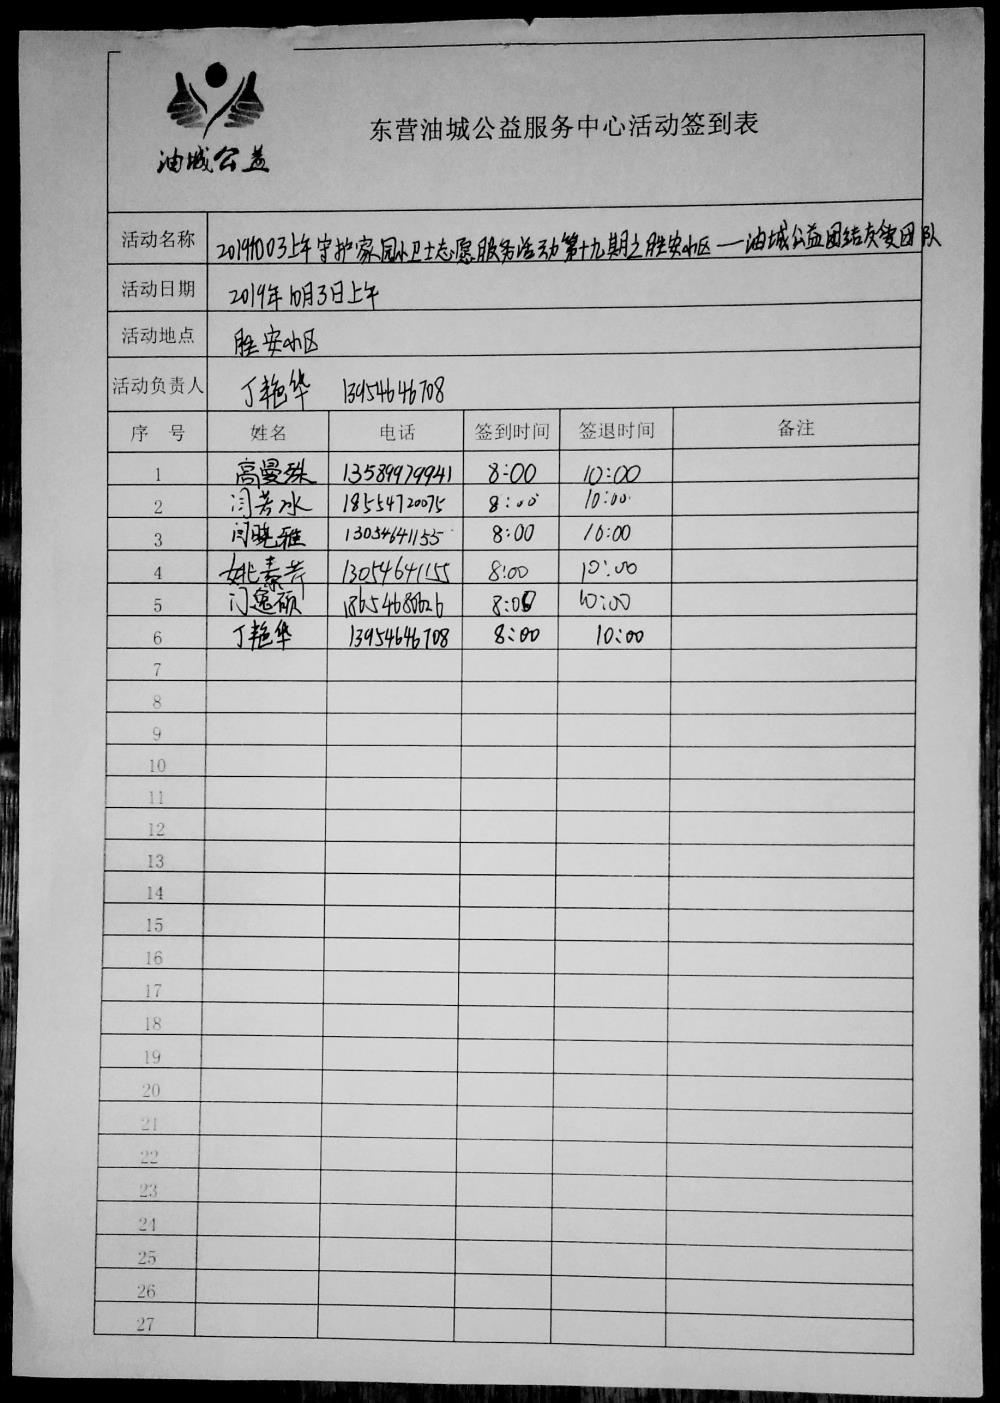 油城公益
东营油城公益服务中心活动签到表
活动名称 20191003上午守护家园小卫士志愿服务活动第十九期之胜安小区—油城公益团结友爱团队
活动日期 2019年10月3日上午
活动地点 胜安小区
活动负责人 丁艳华 13954646708
序 号 姓名 电话 签到时间 签退时间 备注
1 高曼殊 13589979941 8:00 10:00
2 闫芳冰 18554720075 8:00 10:00
3 闫晓雅 13054641155 8:00 10:00
4 姚素芹 13054641155 8:00 10:00
5 闫逸硕 18654680626 8:00 10:00
6 丁艳华 13954646708 8:00 10:00
7
8
9
10
11
12
13
14
15
16
17
18
19
20
21
22
23
24
25
26
27